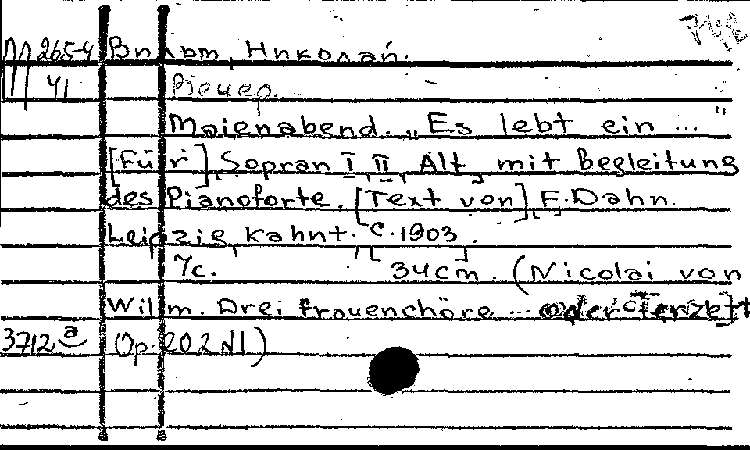 265-4 Вильм, Николай.
41 Pieuep.
Maienabend. „Es lebt ein ..."
[Für], Sopran I, II, Alt, mit Begleitung
des Pianoforte. [Text von] F. Dahn.
Leipzig, Kahnt. C. 1903.
7c. 34cm. (Nicolai von
Wilm. Drei Frauenchöre ... oder Terzett
3712 a (Op. 202 N1)